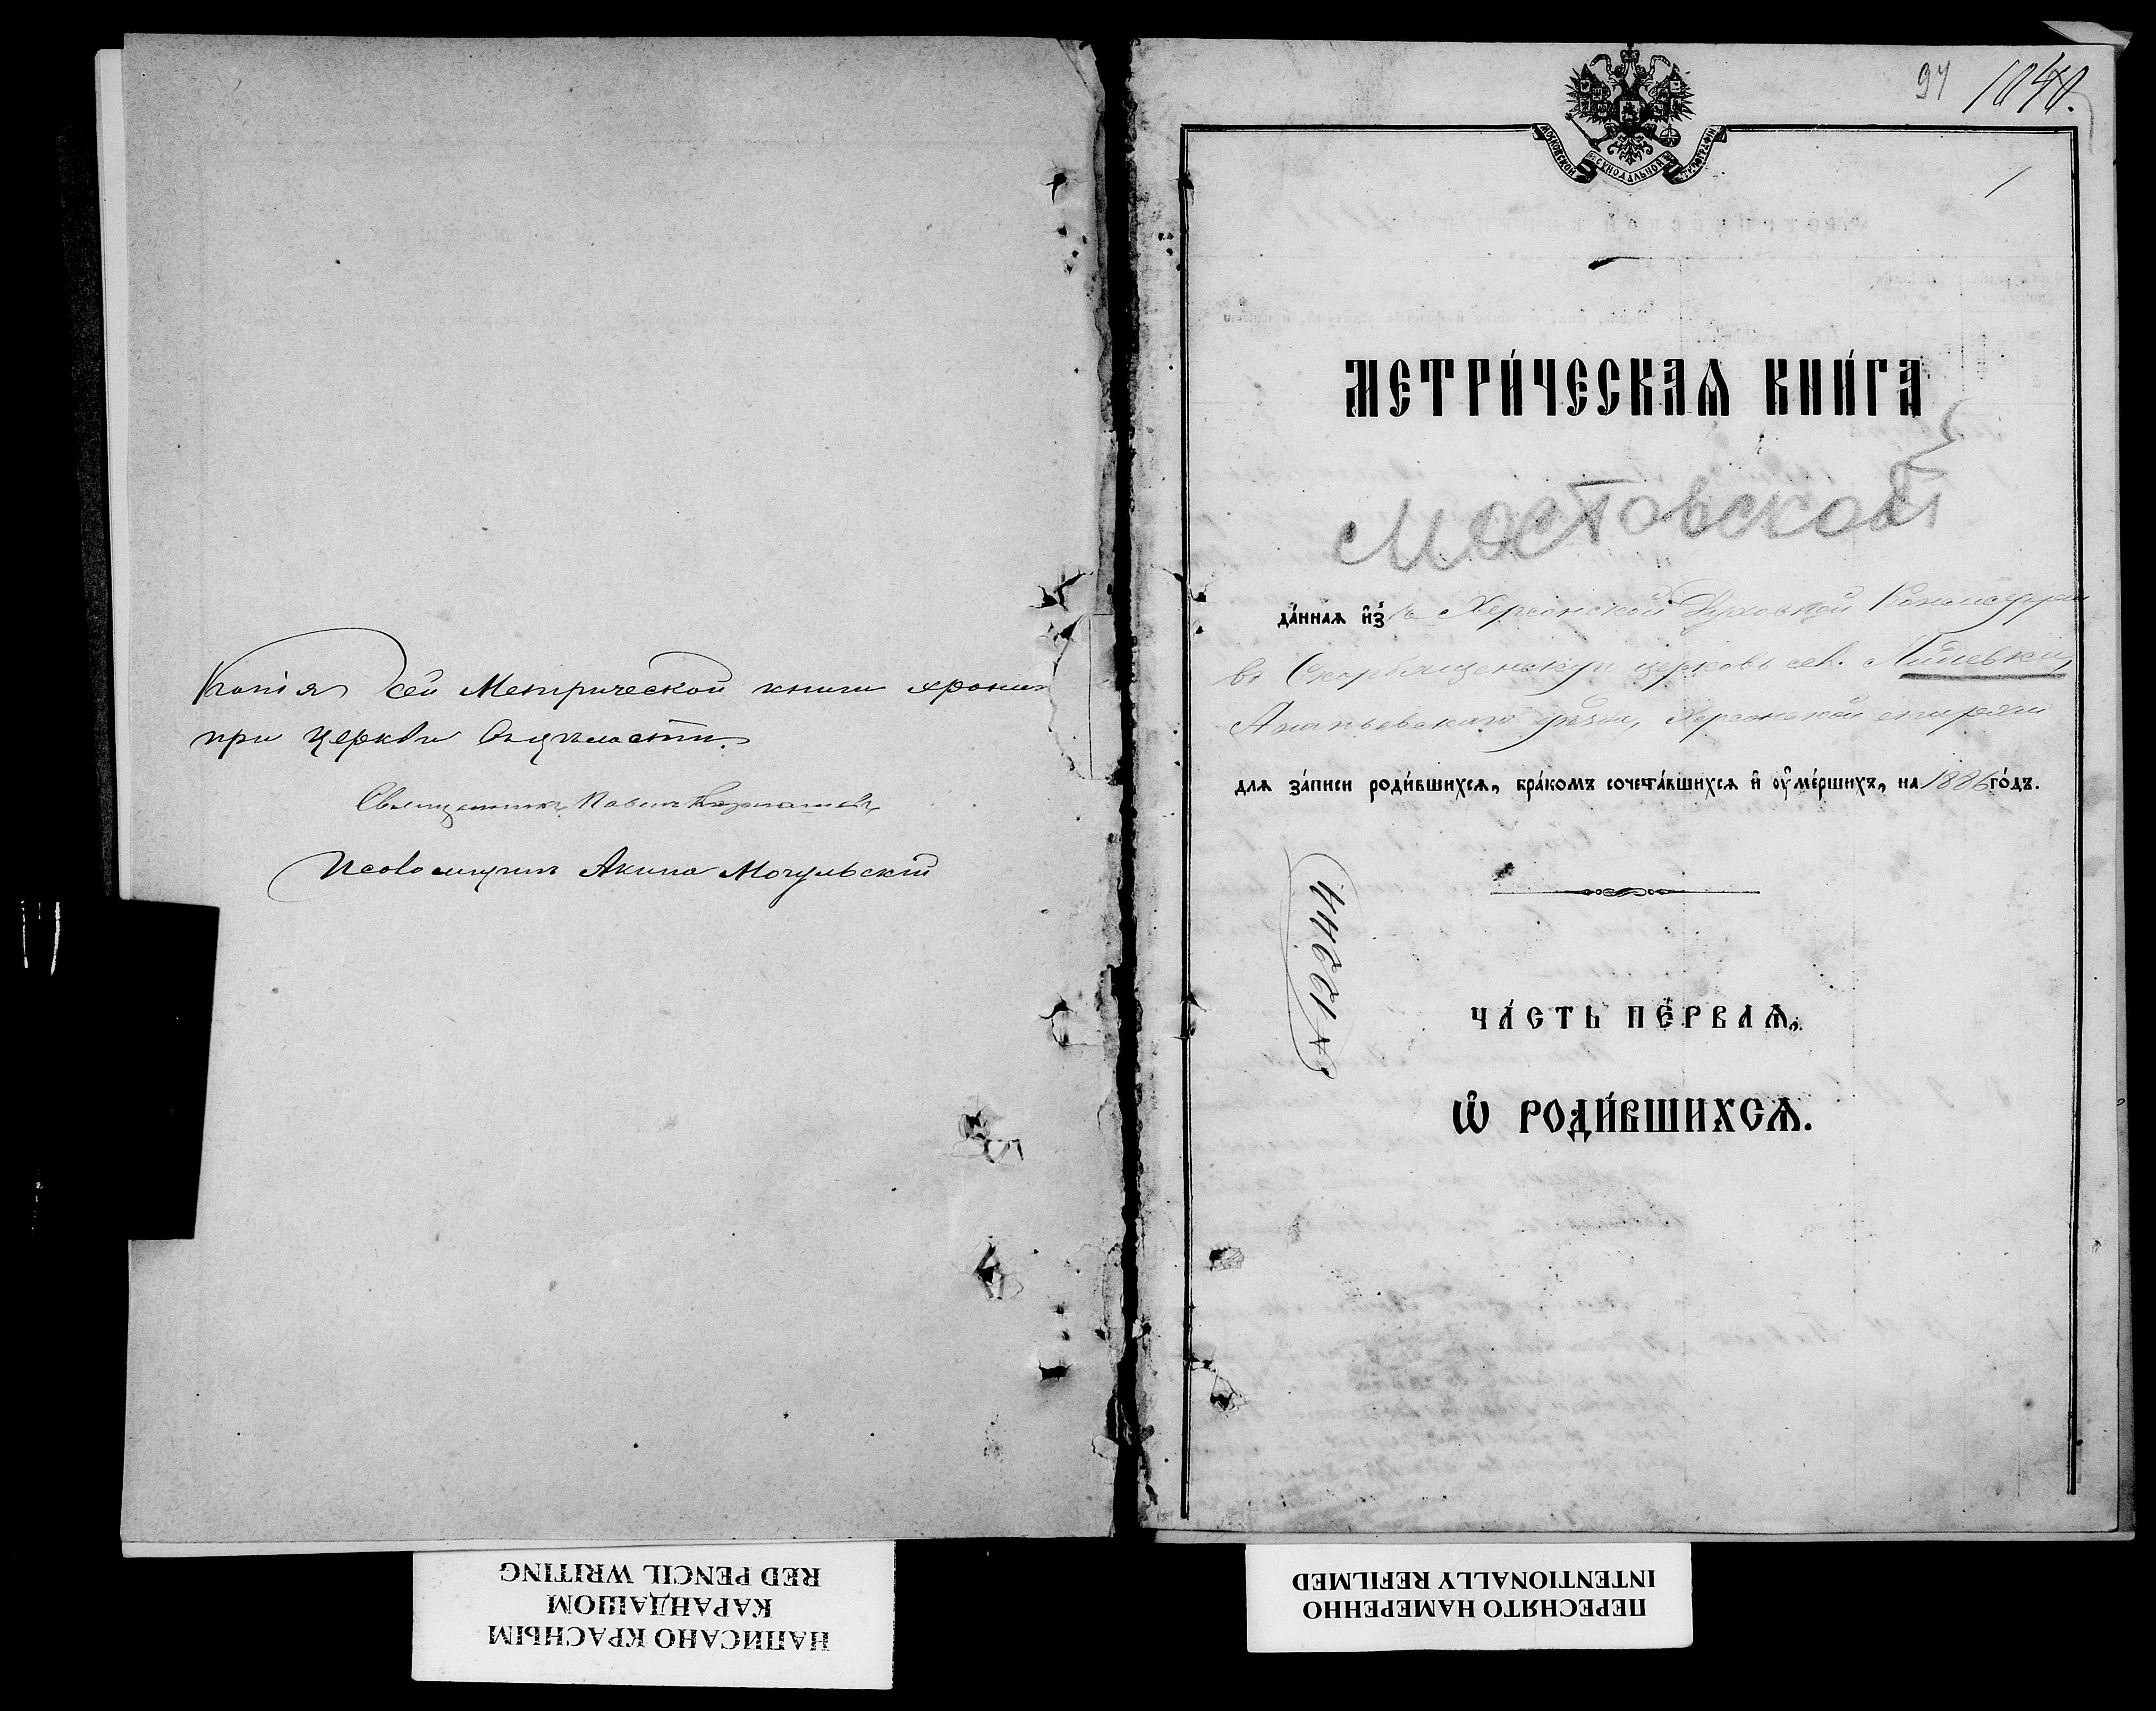 Копія сей Метрической книги храни
при церкви въ цѣлости.
Священникъ Павелъ
Псаломщикъ Акила Могульскій
94 1040.
МОСКОВСКОЙ СѴНОДАЛЬНОЙ ТИПОГРАФІИ
1
МЕТРИ́ЧЕСКАѦ КНИ́ГА
Мостовской
да́ннаѧ и҆з̾ Херсонской Духовной Консисторіи
въ Скорбященскую церковь сел.
Ананьевскаго уѣзда, Херсонской епархіи
длѧ за́писи роди́вшихсѧ, бра́комъ сочета́вшихсѧ и҆ ᲂу҆ме́ршихъ, на 1886 го́дъ.
№ 12244
ЧА́СТЬ ПЕ́РВАѦ,
Ѽ РОДИ́ВШИХСѦ.
НАПИСАНО КРАСНЫМ
КАРАНДАШОМ
RED PENCIL WRITING
ПЕРЕСНЯТО НАМЕРЕННО
INTENTIONALLY REFILMED